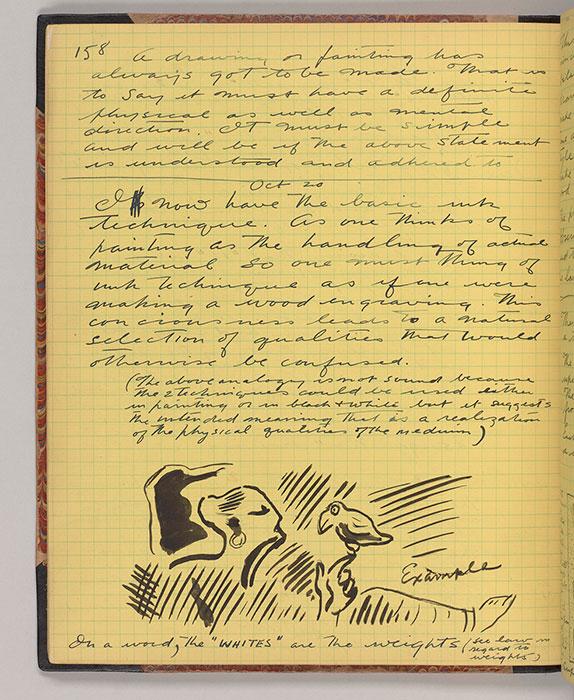 158
A drawing or painting has
always got to be made. That is
to say it must have a definite
physical as well as mental
direction. It must be simple
and will be if the above statement
is understood and adhered to
Oct 20
I now have the basic ink
technique. As one thinks of
painting as the handling of actual
material so one must thing of
ink technique as if one were
making a wood engraving. This
conciousness leads to a natural
selection of qualities that would
otherwise be confused.
(The above analogy is not sound because
the 2 techniques could be used either
in painting or in black + white but it suggests
the intended meaning that is a realization
of the physical qualities of the medium)
Example
In a word, the "WHITES" are the weights (see law in
regard to
weights)